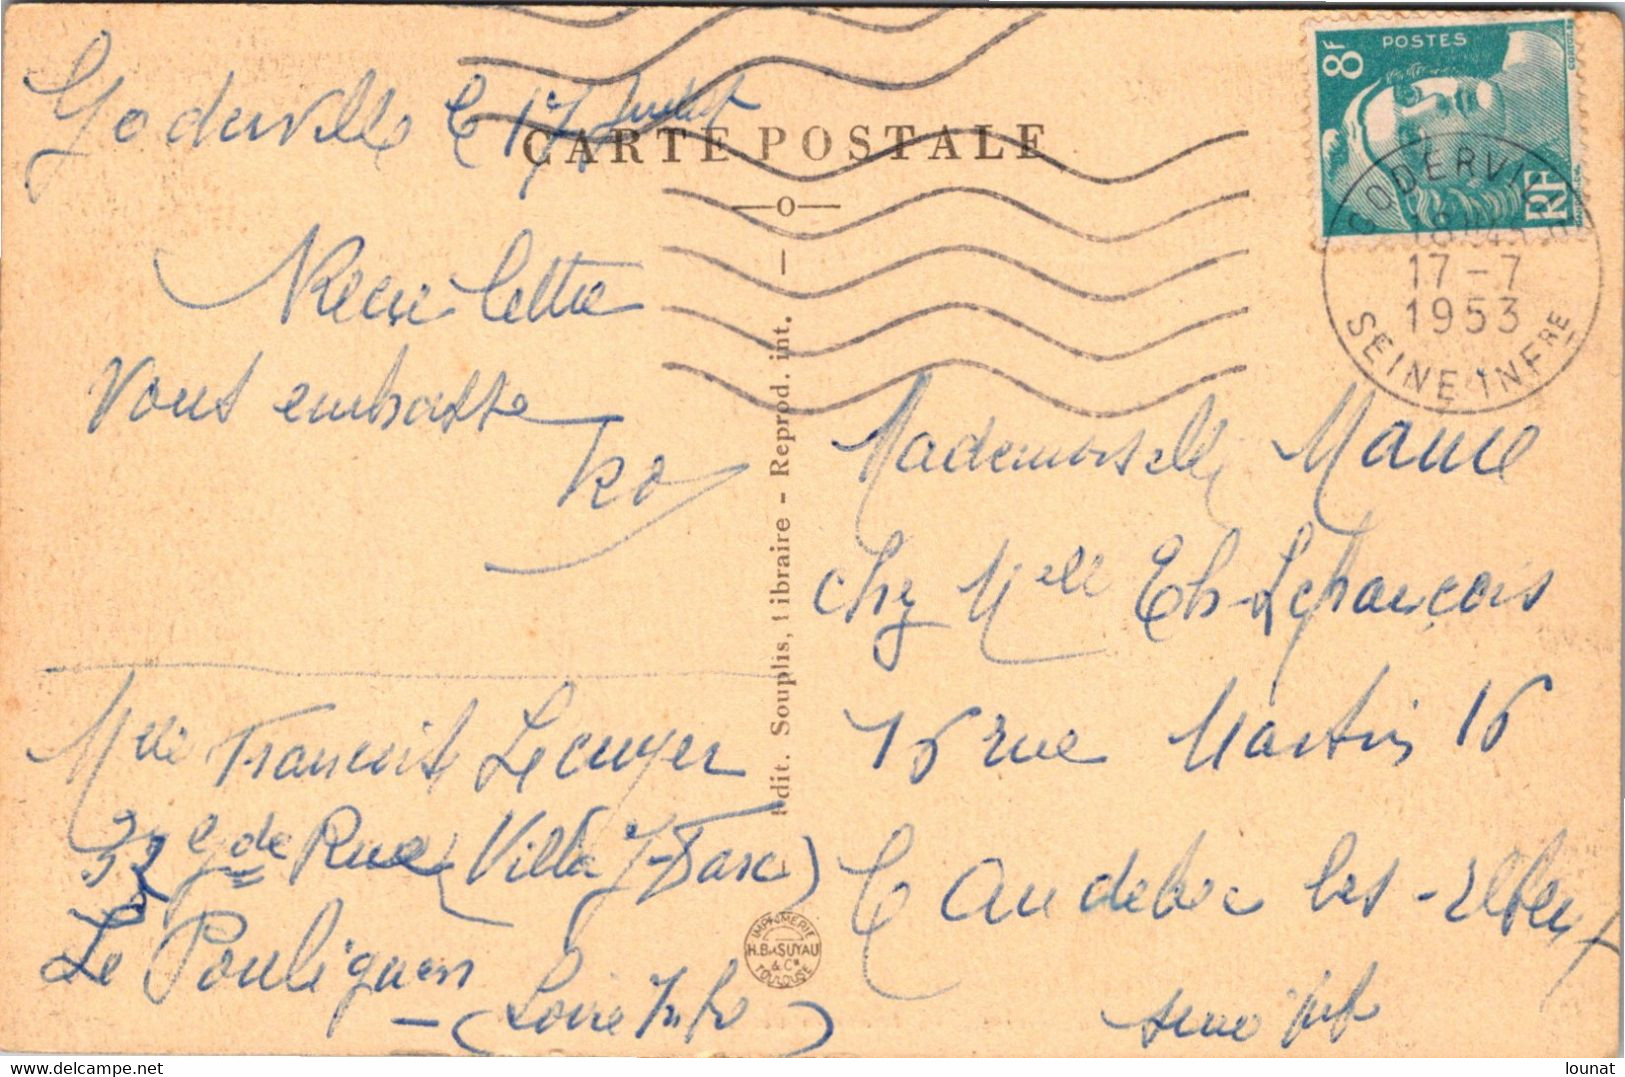 Goderville le 17 Juillet
CARTE POSTALE
Recu lettre
Vous embrasse
Melle Francoise Lecuyer
32 gde Rue (Villa J-Darc)
Le Pouliguen
(Loire Infre)
Edit. Souplis, libraire - Reprod. int.
IMPRIMERIE
H. BASUYAU
& Cie
TOULOUSE
8F
POSTES
RF
GODERVILLE
18H45
17-7
1953
SEINE INFRE
Mademoiselle
chez Melle Eh-Lefrançois
16 rue Martin 16
Caudebec les-Elbeuf
Seine Inf
lounat